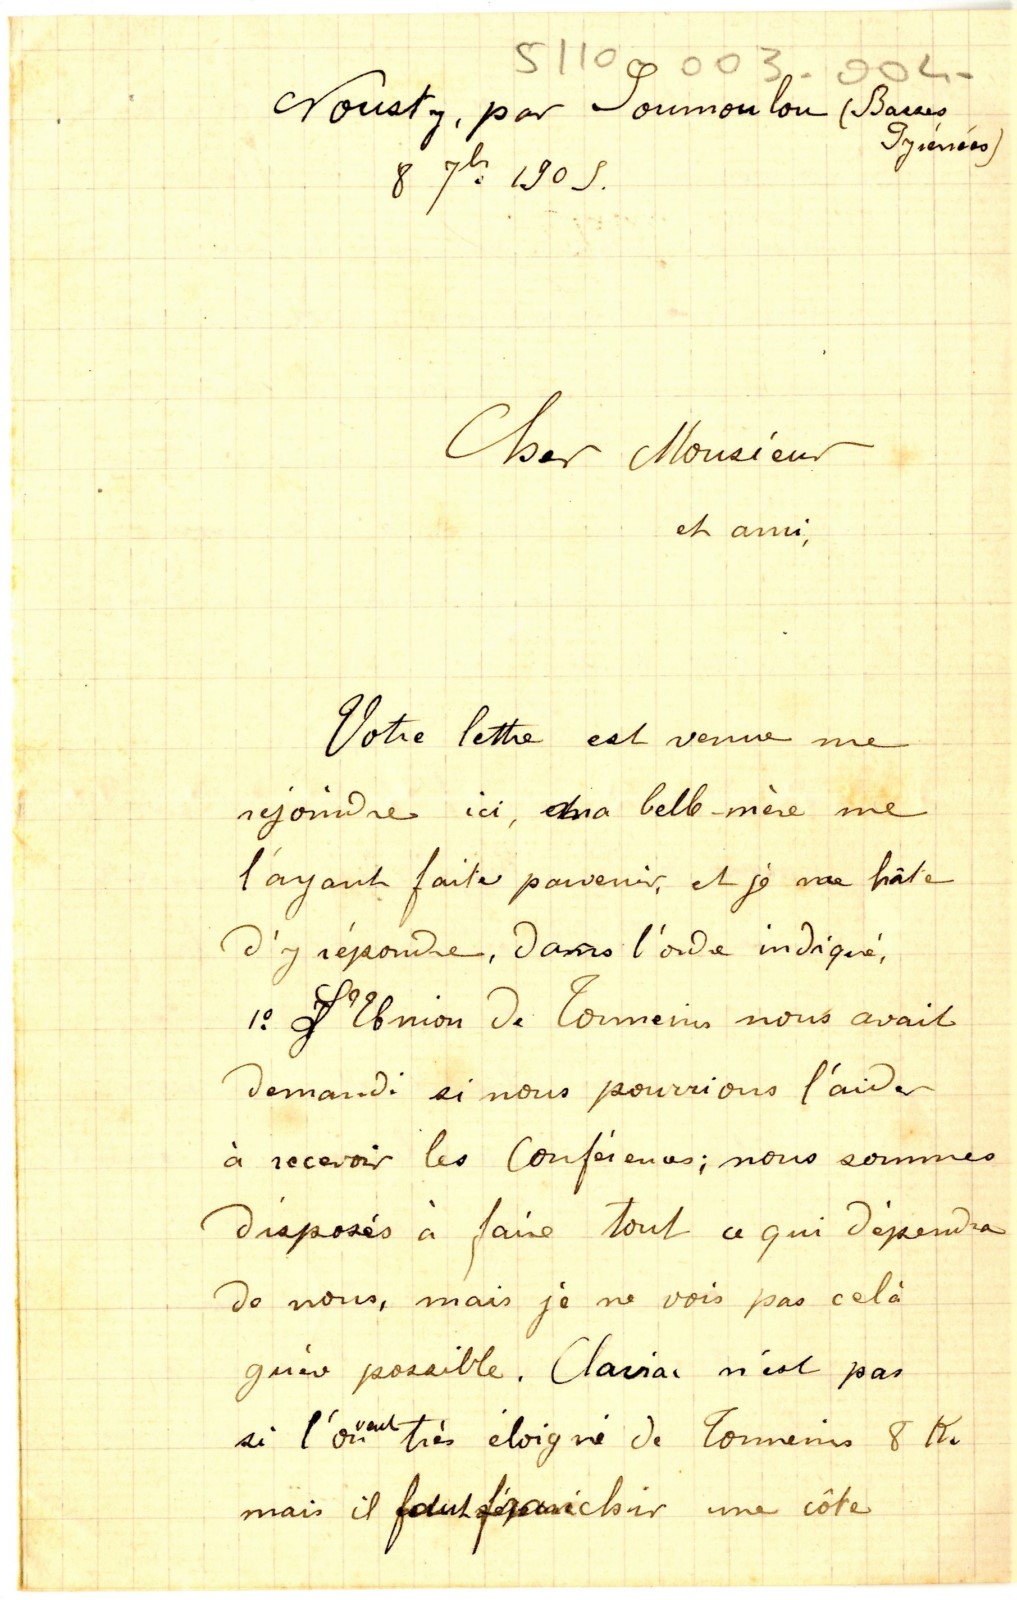 5110 003-004-
Nousty, par Soumoulou (Basses
Pyrénées)
8 7bre 1905.
Cher Monsieur
et ami,
Votre lettre est venue me
rejoindre ici, ma belle-mère me
l'ayant faite parvenir, et je me hâte
d'y répondre, dans l'ordre indiqué,
1º L'Union de Tonneins nous avait
demandé si nous pourrions l'aider
à recevoir les Conférences; nous sommes
disposés à faire tout ce qui dépendra
de nous, mais je ne vois pas celà
guère possible. Clairac n'est pas
si l'on veut très éloigné de Tonneins 8 K.
mais il faut franchir une côte